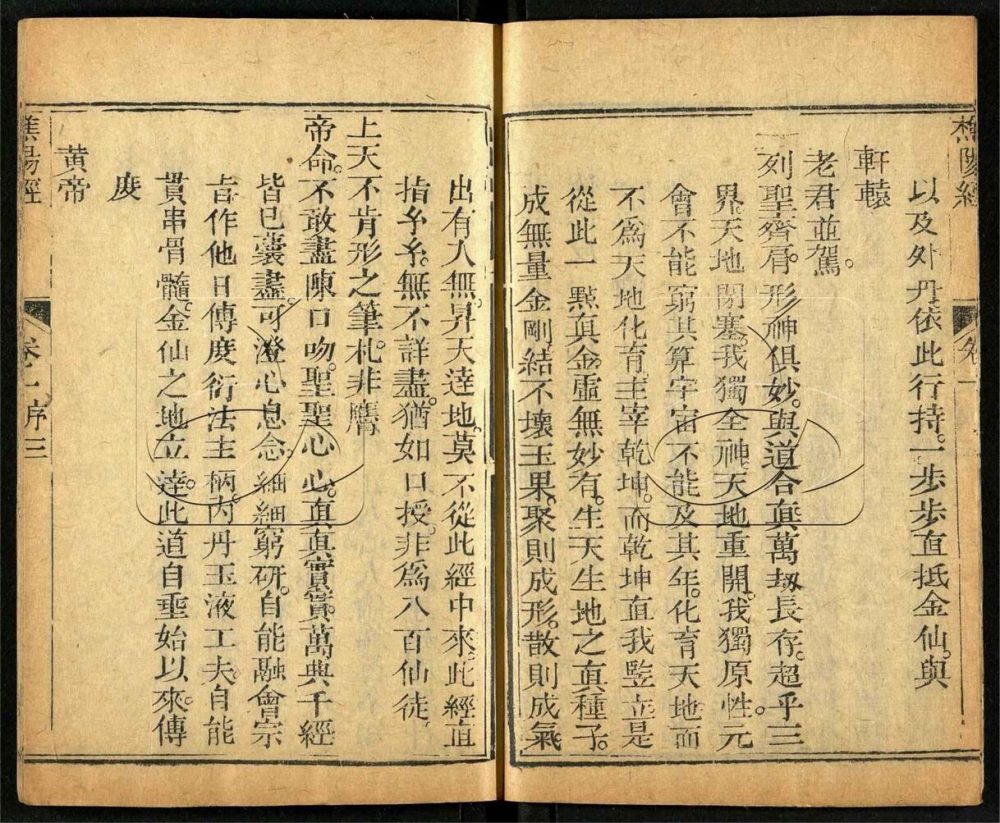 樵陽經
以及外丹依此行持。一步步直抵金仙。與
軒轅
老君並駕。
列聖齊肩。形神俱妙。與道合真。萬刼長存。超乎三
界。天地閉塞。我獨全神。天地重開。我獨原性。元
會不能窮其算。宇宙不能及其年。化育天地而
不爲天地化育。主宰乾坤。而乾坤直我竪立。是
從此一點真金。虛無妙有。生天生地之真種子。
成無量金剛。結不壞玉果。聚則成形。散則成氣
出有入無。昇天達地。莫不從此經中來。此經直
指糸糸。無不詳盡。猶如口授。非爲八百仙徒。
上天不肯形之筆札。非膺
帝命。不敢盡陳口吻。聖聖心心。真真實實。萬典千經
皆已囊盡。可澄心息念。細細窮研。自能融會宗
旨。作他日傳度衍法主柄。內丹玉液工夫。自能
貫串骨髓。金仙之地立達。此道自垂始以來。傳
度
黃帝
樵陽經
卷一序三